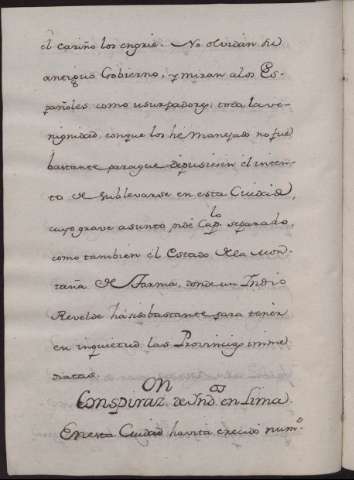 el cariño los engrie. No olvidan he
antiguo Gobierno, y miran a los Es-
pañoles como usurpadores; toda la ve-
nignidad, con que los he manejado no fue
bastante para que depusiesen el inten-
to de sublevarse en esta Ciudad,
cuyo grave asunto pide Cap.lo separado,
como tambien el Estado de la Mon-
taña de Tarma, donde un Indio
Revelde há sido bastante para tener
en inquietud las Provincias imme-
diatas.
Conspiraz.on de Ind.os en Lima.
En esta Ciudad havita crecido num.o